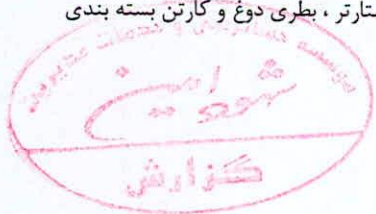 ستارتر ، بطری دوغ و کارتن بسته بندی
موسسه حسابرسی و خدمات مدیریت
گزارش